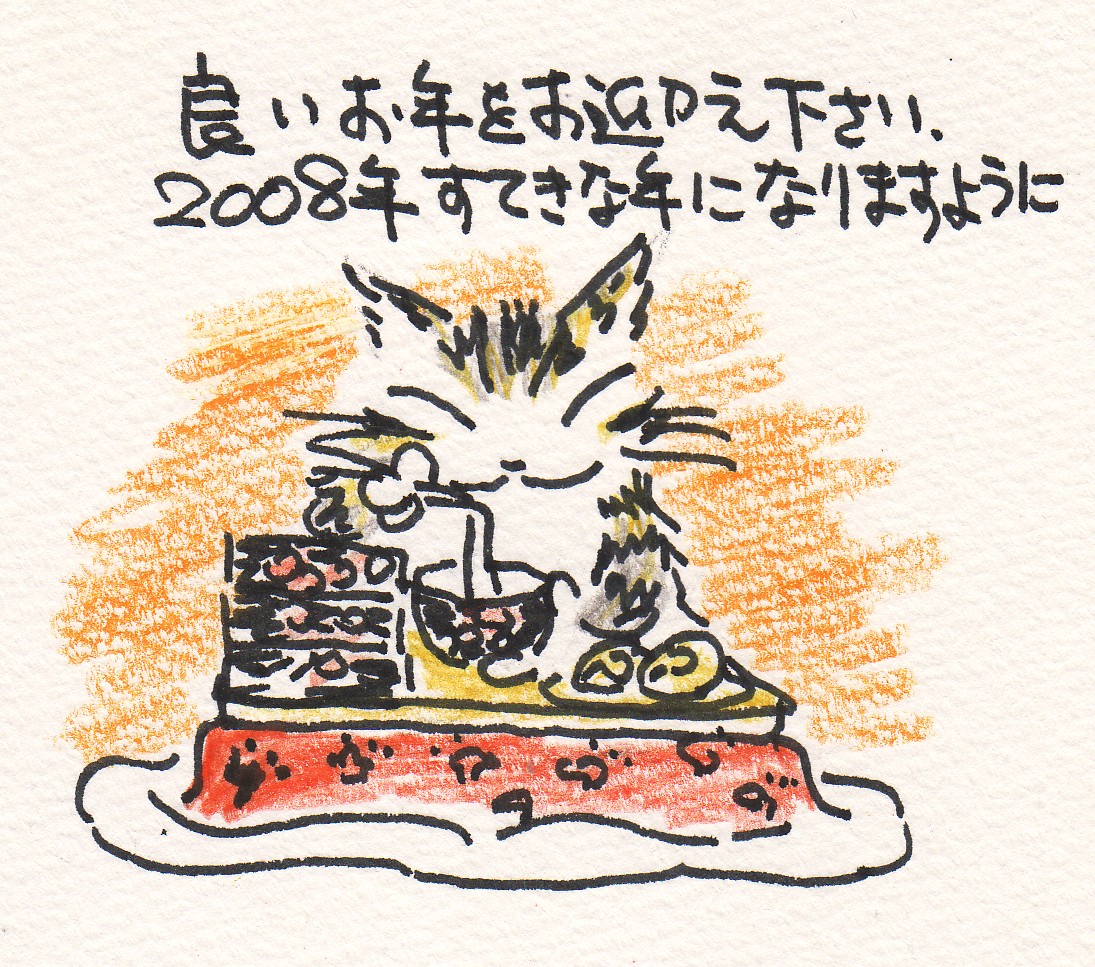 良いお年をお迎え下さい、
2008年すてきな年になりますように